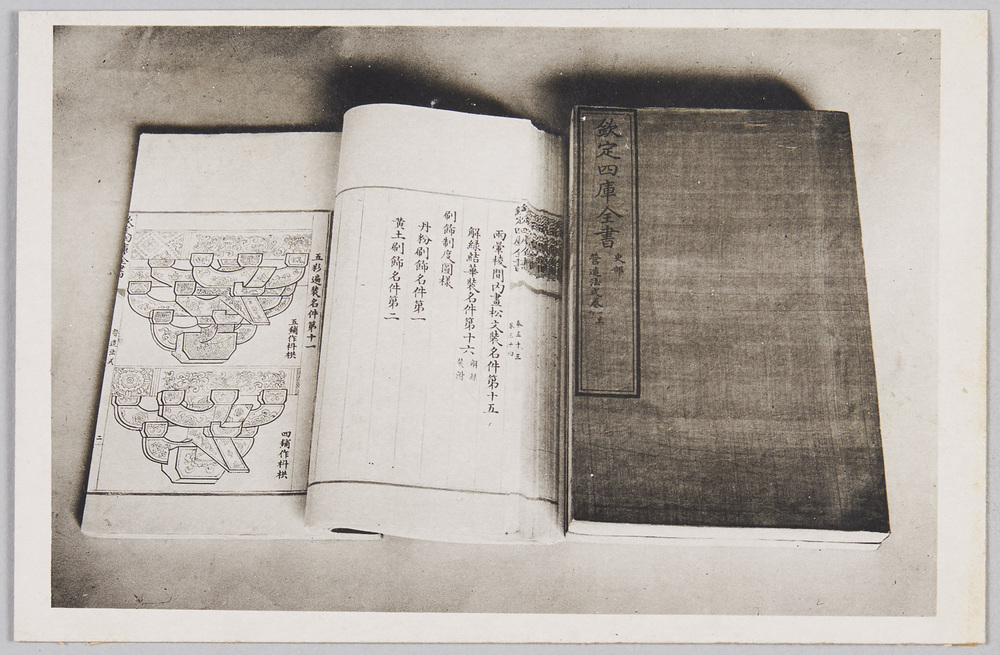 欽定四庫全書
史部
營造法式卷
兩暈棱間內畫松文裝名件第十五
解綠結華裝名件第十六
刷飾制度圖樣
丹粉刷飾名件第一
黃土刷飾名件第二
五彩遍裝名件第十一
五鋪作枓栱
四鋪作枓栱